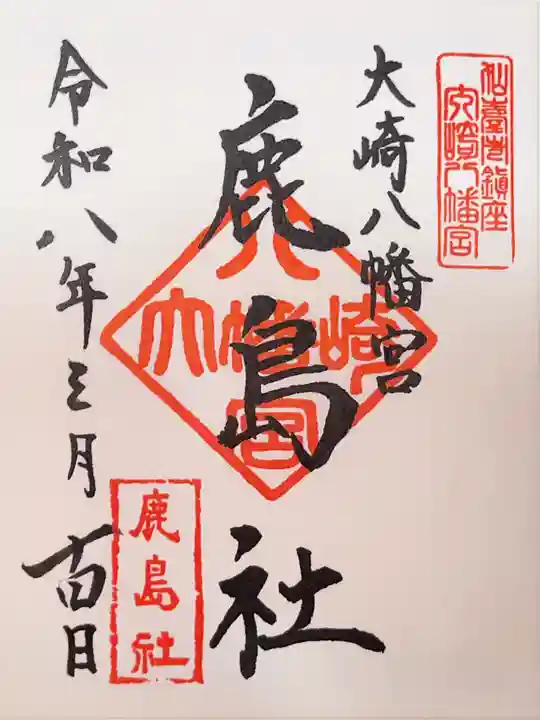 大崎八幡宮
大崎八幡宮
鹿島社
大崎八幡宮
鹿島社
令和八年三月十四日